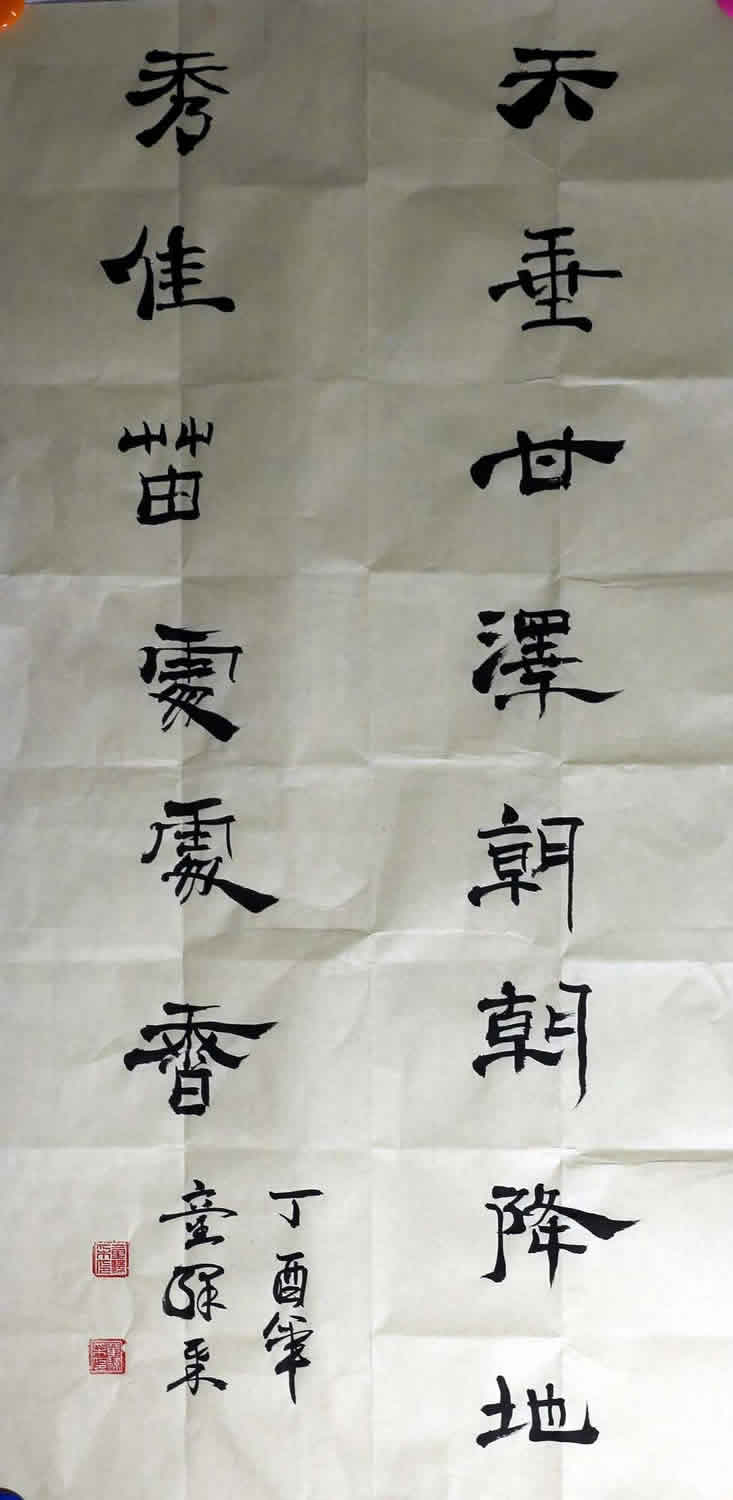 天垂甘澤朝朝降地
秀佳苗處處香
丁酉年
童